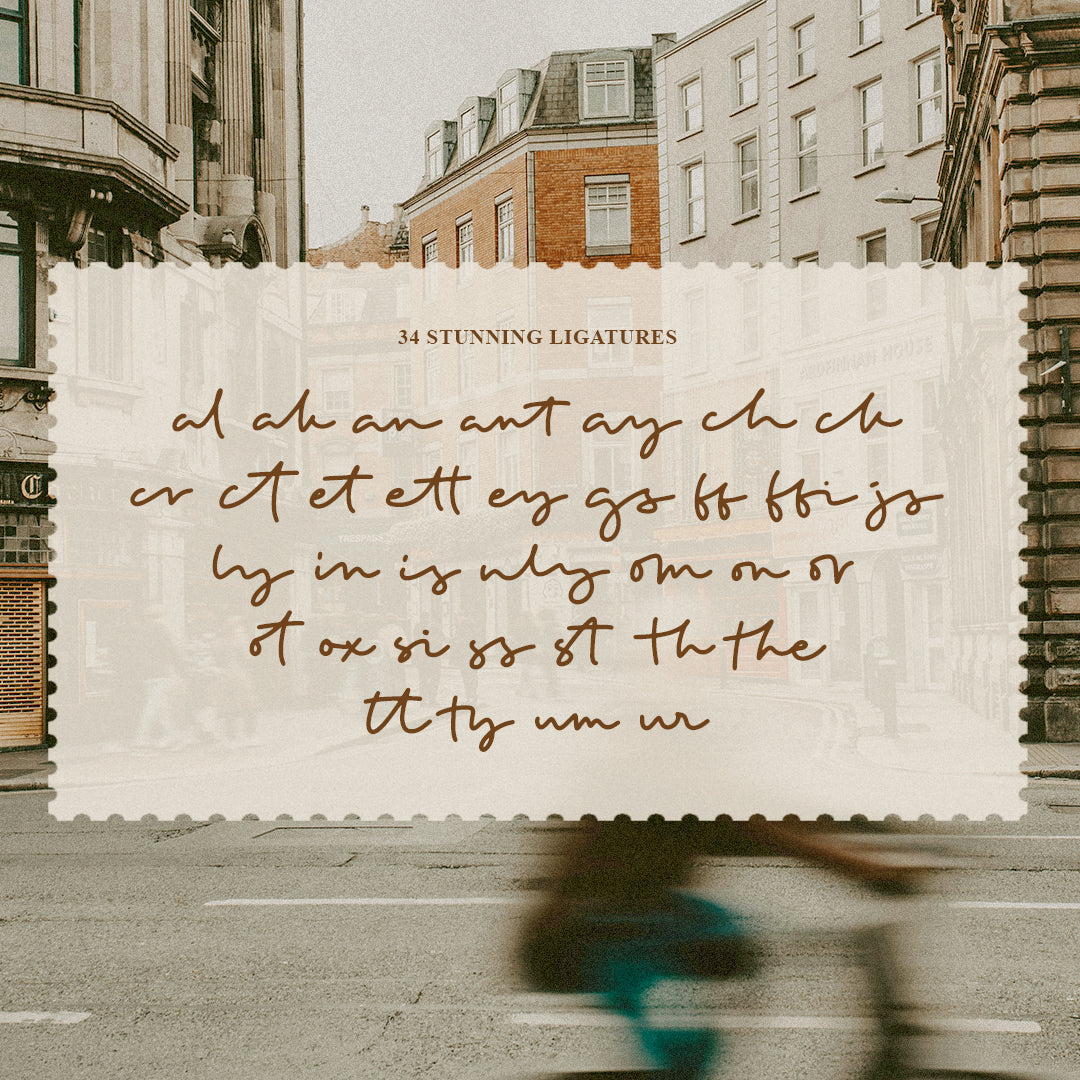 34 STUNNING LIGATURES
al ak an ant ay ch ck
cr ct et ett ey gs ff ffi js
ly in is nly om on or
ot ox si ss st th the
tt ty um ur
ARDHINNAH HOUSE
TRESPASS
C